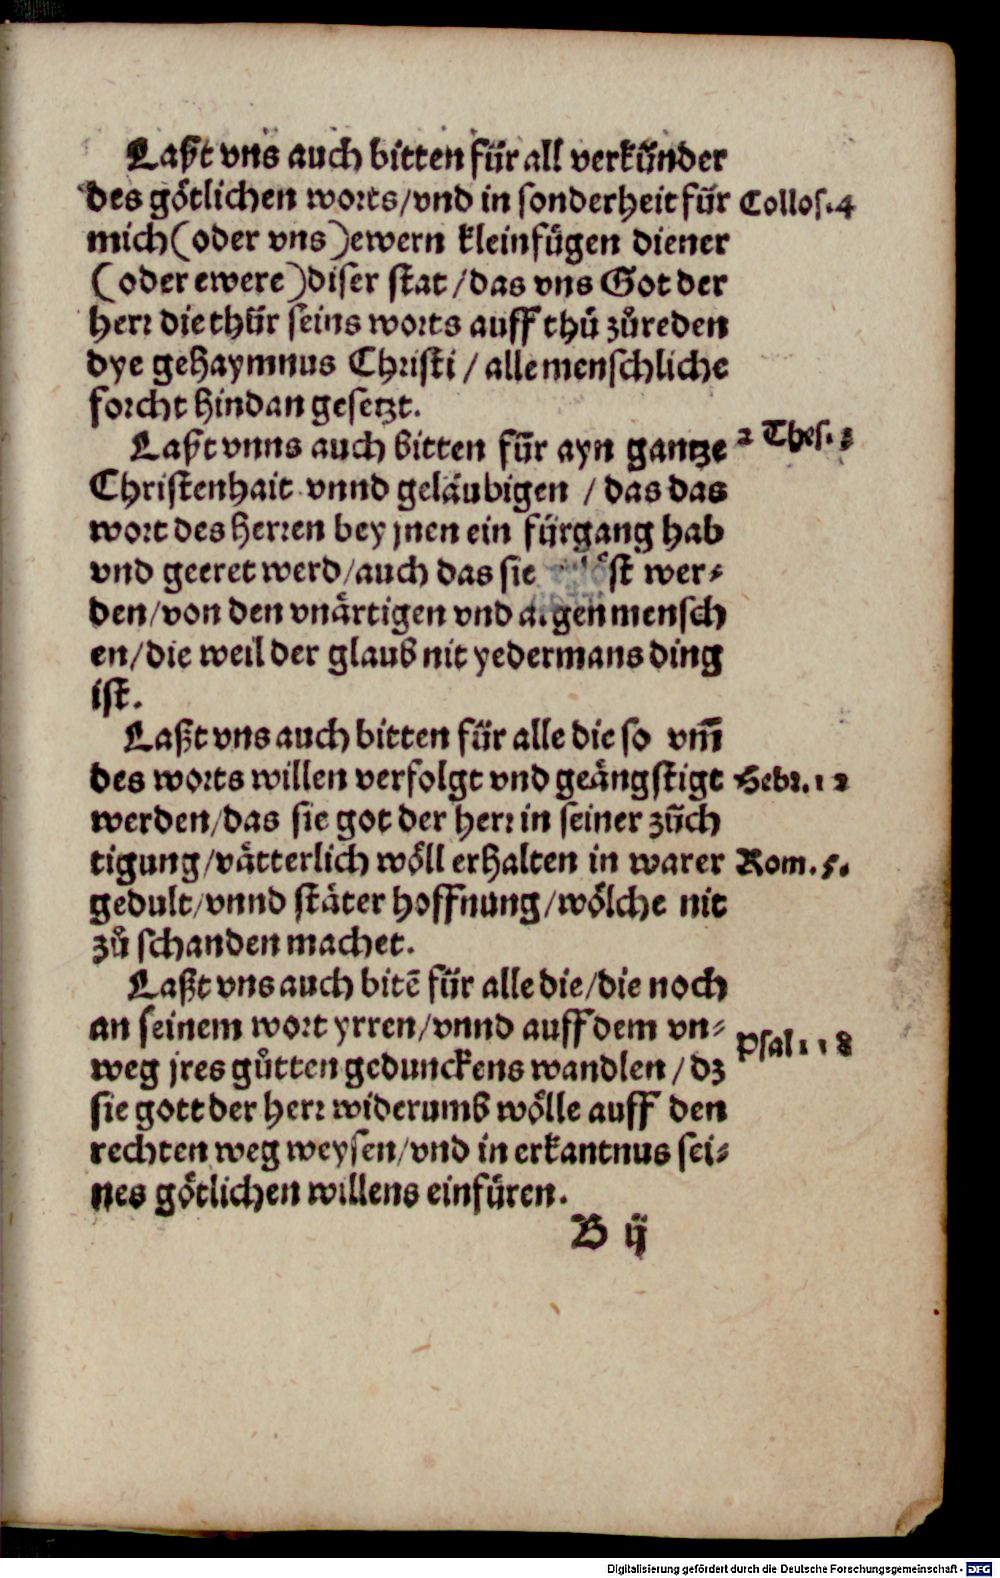 Laßt vns auch bitten für all verkünder
des götlichen worts/vnd in sonderheit für
Collos.4
mich(oder vns)ewern kleinfügen diener
(oder ewere)diser stat/das vns Got der
herr die thür seins worts auff thů zůreden
dye gehaymnus Christi/alle menschliche
forcht hindan gesetzt.
Laßt vnns auch bitten für ayn gantze
2 Thes. 3
Christenhait vnnd geläubigen /das das
wort des herren bey jnen ein fürgang hab
vnd geeret werd/auch das sie wer⸗
den/von den vnärtigen vnd mensch
en/die weil der glaub nit yedermans ding
ist.
Laßt vns auch bitten für alle die so vm̃
des worts willen verfolgt vnd geängstigt
Hebr.12
werden/das sie got der herr in seiner züch
tigung/vätterlich wöll erhalten in warer
Rom.5.
gedult/vnnd stäter hoffnung/wölche nit
zů schanden machet.
Laßt vns auch bitē für alle die/die noch
an seinem wort yrren/vnnd auff dem vn⸗
Psal.118
weg jres gůtten gedunckens wandlen/dz
sie gott der herr widerumb wölle auff den
rechten weg weysen/vnd in erkantnus sei⸗
nes götlichen willens einfüren.
B ij
Digitalisierung gefördert durch die Deutsche Forschungsgemeinschaft - DFG